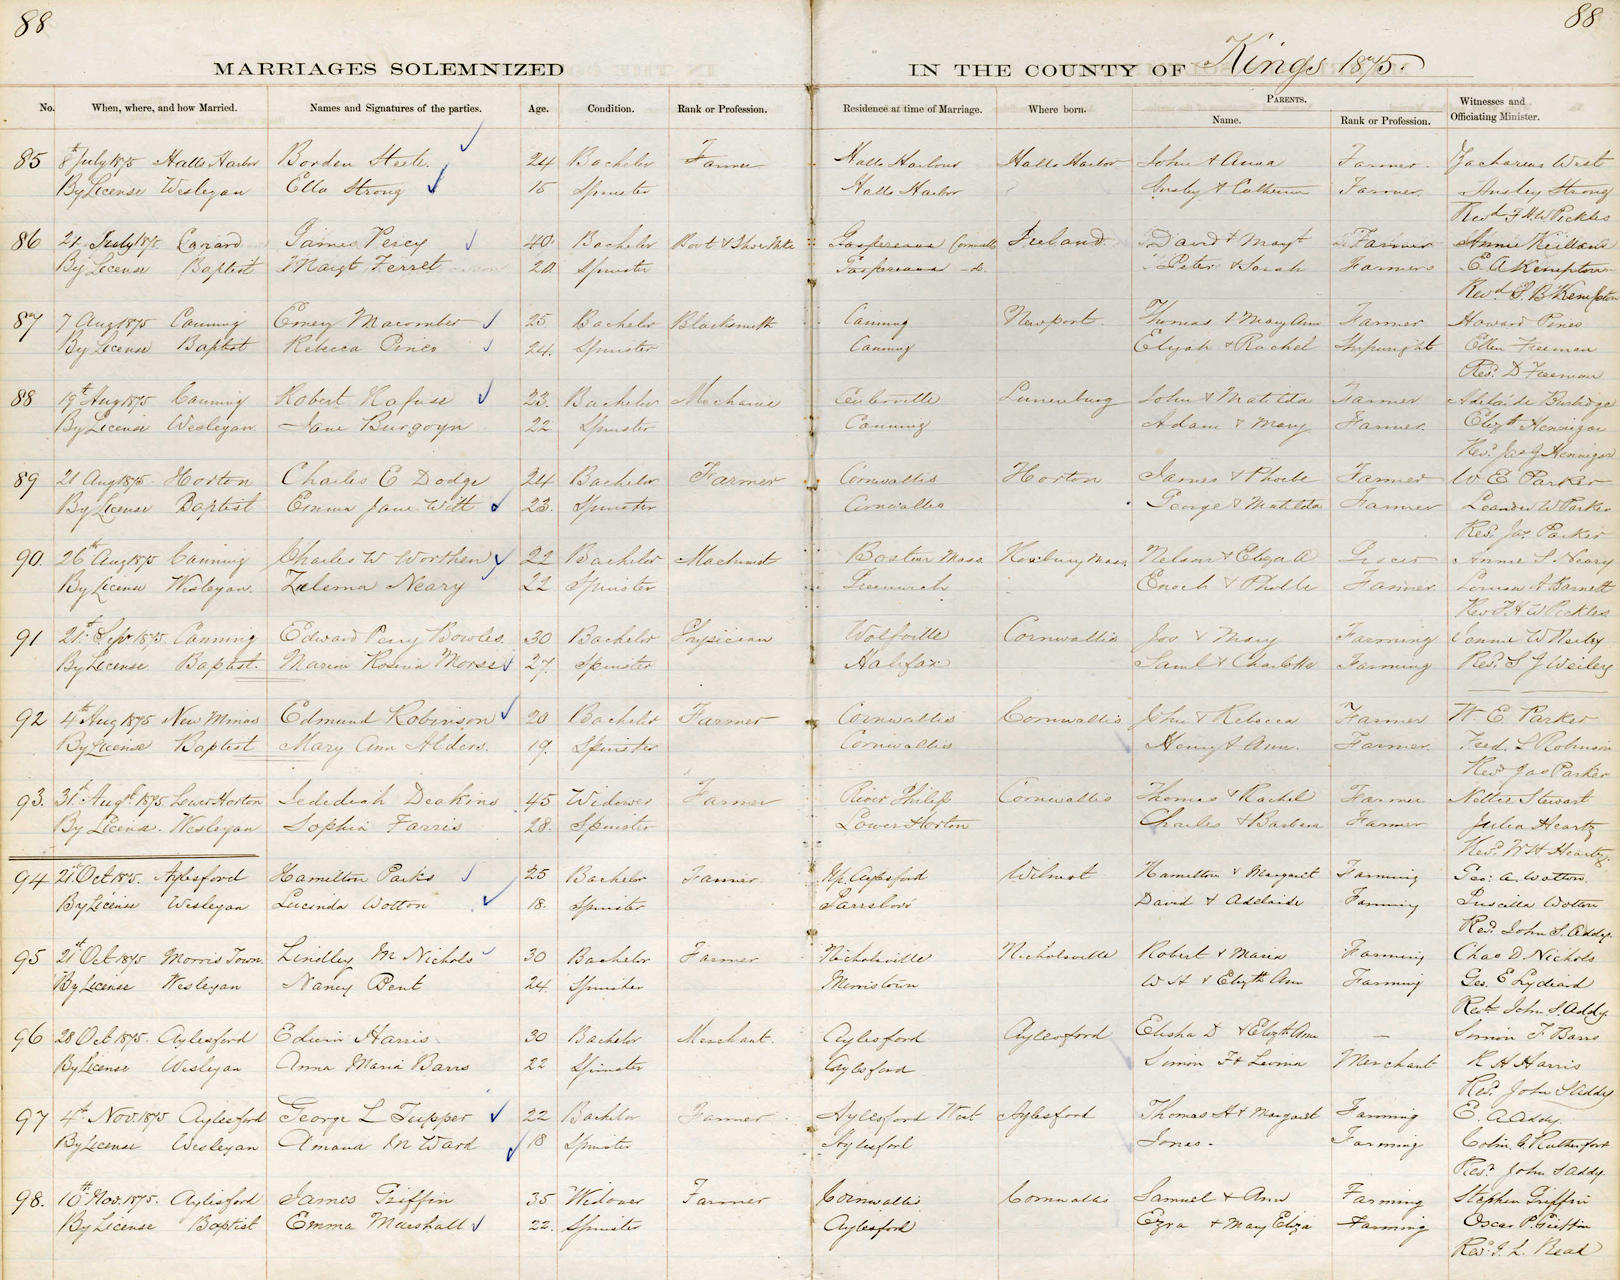 88
88
MARRIAGES SOLEMNIZED IN THE COUNTY OF Kings 1875.
No. When, where, and how Married. Names and Signatures of the parties. Age. Condition. Rank or Profession. Residence at time of Marriage. Where born. PARENTS. Name. Rank or Profession. Witnesses and Officiating Minister.
85 8th July 1875 Halls Harbor Borden Steele. 24 Bachelor Farmer Halls Harbour Halls Harbor John & Anna Farmer. Zacharius West
By License Wesleyan Ella Strong 18 Spinster Halls Harbor Ansley & Catherine Farmer. Ansley Strong
Revd F. H. W Pickles
86 21 July 1875 Canard James Percy 40 Bachelor Boot & Shoe Mkr Gaspereaux Cornwallis Ireland David & Margt Farmer Annie
By License Baptist Margt Ferret 20. Spinster Gaspereaux -do Peter & Sarah Farmers E A Kempton
Revd S. B Kempton
87 7 Aug 1875 Canning Emery Macomber 25. Bachelor Blacksmith Canning Newport Thomas & Mary Ann Farmer Howard Pineo
By License Baptist Rebeca Pineo 24. Spinster Canning Elijah & Rachel Shipwright Ellen Freeman
Rev. D Freeman
88 19th Aug 1875 Canning Robert Hafuse 23. Bachelor Mechanic Lunenburg John & Matilda Farmer Adelaide Burbidge
By License Wesleyan. Jane Burgoyn 22 Spinster Canning Adam & Mary Farmer. Elizth Hennigar
Rev. Jas G Hennigar
89 21 Aug 1875. Horton Charles E Dodge 24 Bachelor Farmer Cornwallis Horton James & Phoebe Farmer W E Parker
By License Baptist Emma Jane Witt 23. Spinster Cornwallis George & Matilda Farmer Leander W Parker
Rev. Jas Parker
90. 26th Aug 1875 Canning Charles W Worthen 22 Bachelor Machinist Boston Mass Roxbury Mass. Nelson & Eliza A Grocer Annie S Neary
By License Wesleyan. Zulema Neary 22 Spinster Greenwich Enoch & Phebe Farmer Louisa A Barnett
Rev F. H W Pickles
91 21st Sept 1875. Canning Edward Perry Bowles. 30 Bachelor Physician Wolfville Cornwallis Jos & Mary Farming W Neiley
By License Baptist. Maria Rosina Morse 27. Spinster Halifax Saml & Charlotte Farming Rev. S J Neiley
92 4th Aug 1875 New Minas Edmund Robinson 20 Bachelor Farmer Cornwallis Cornwallis John & Rebecca Farmer W. E. Parker
By License Baptist Mary Ann Alders. 19. Spinster Cornwallis Henry & Ann. Farmer. Fred. L Robinson
Revd Jas Parker
93. 31st Augst 1875. Lower Horton Jedediah Deakins 45 Widower Farmer River Philip Cornwallis Thomas & Rachel Farmer Nellie Stewart
By License. Wesleyan Sophia Farris 28. Spinster Lower Horton Charles & Barbara Farmer Julia Heartz
Rev. W H Heartz.
94 21st Oct 1875. Aylesford Hamilton Parks 25 Bachelor Farmer Up Aylesford Wilmot Hamilton & Margaret Farming Geo: A. Wotton.
By License Wesleyan Lucinda Wotton 18. Spinster Parrsboro' David & Adelaide Farming Priscilla Wotton
Revd. John S. Addy.
95 21st Oct 1875 Morris Town. Lindley M Nichols 30 Bachelor Farmer Nicholsville Nicholsville Robert & Maria Farming Chas D Nichols
By License Wesleyan Nancy Bent 24. Spinster Morristown W H & Elizth Ann Farming Geo. E Lydiard
Revd. John S. Addy
96 28 Oct 1875. Aylesford Edwin Harris 30 Bachelor Merchant. Aylesford Aylesford Elisha D & Elizth Ann — Simon F Barss
By License Wesleyan Anna Maria Barss 22 Spinster Aylesford Simon F & Lavinia Merchant R H Harris
Rev. John S Addy
97 4th Nov. 1875 Aylesford George L Tupper 22 Bachelor Farmer Aylesford West Aylesford Thomas H & Margaret Farming E. A Addy
By License Wesleyan Amand M Ward 18 Spinster Aylesford Jonas. Farming Colin C. Rutherfort
Rev. John S Addy.
98. 10th Nov. 1875. Aylesford James Griffin 35 Widower Farmer Cornwallis Cornwallis Samuel & Ann Farming Stephen Griffin
By License Baptist Emma Marshall 22. Spinster Aylesford Ezra & Mary Eliza Farming Oscar P. Griffin
Rev. J. L. Read